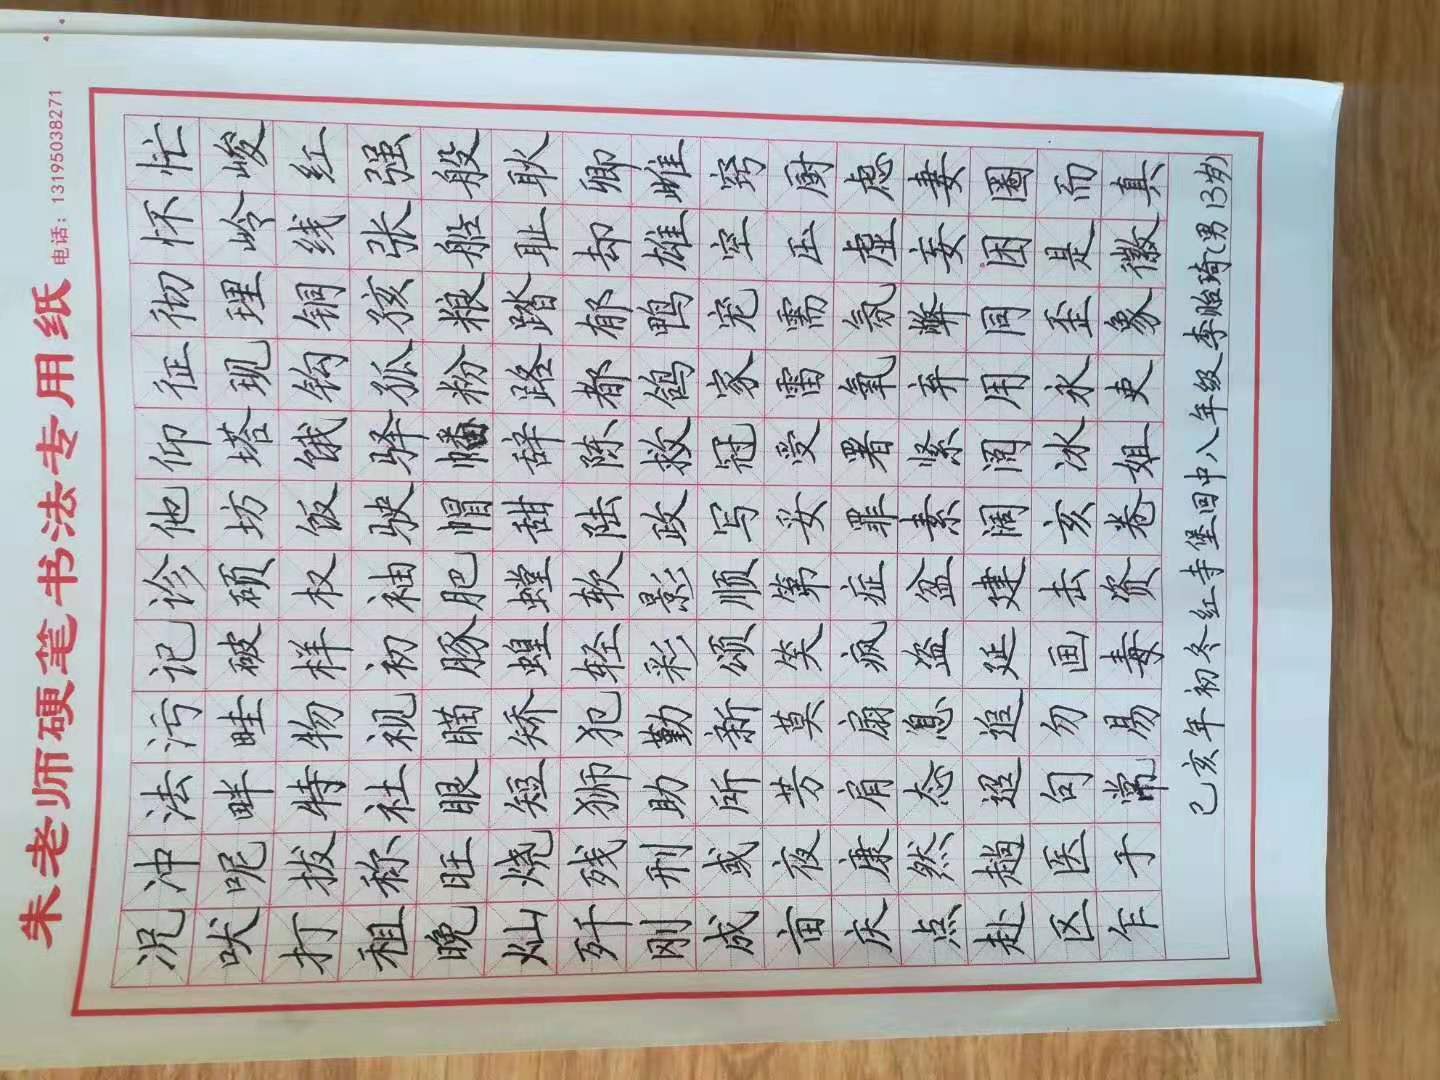 朱老师硬笔书法专用纸 电话：13195038271
况冲法污记诊他仰征彻怀忙
吠呢畔畦破硕坊塔现理岭峻
打拔特物样权饭饿钩铜线红
租称社视初袖驶驿狐孩张强
晚旺眼瞄豚肥帽幡粉粮船般
灿烧短矫蝗螳甜辞路踏耻耿
歼残狮犯轻软陆陈都郁却卿
刚刑助勤彩影政救鸽鸭雄雌
成或所新颂顺写冠家宠空窍
亩夜芳莫笑第妥受雷需压厨
庆康肩扇疯症罪署氧氛虚虑
点然态息盗盆素紧弃弊妄妻
赴趟迢追延建阔阅用同困圈
区医句勿画去亥冰永歪是而
乍于常易毒资卷姐吏象徽真
己亥年初冬红寺堡回中八年级李贻琦(男13岁)